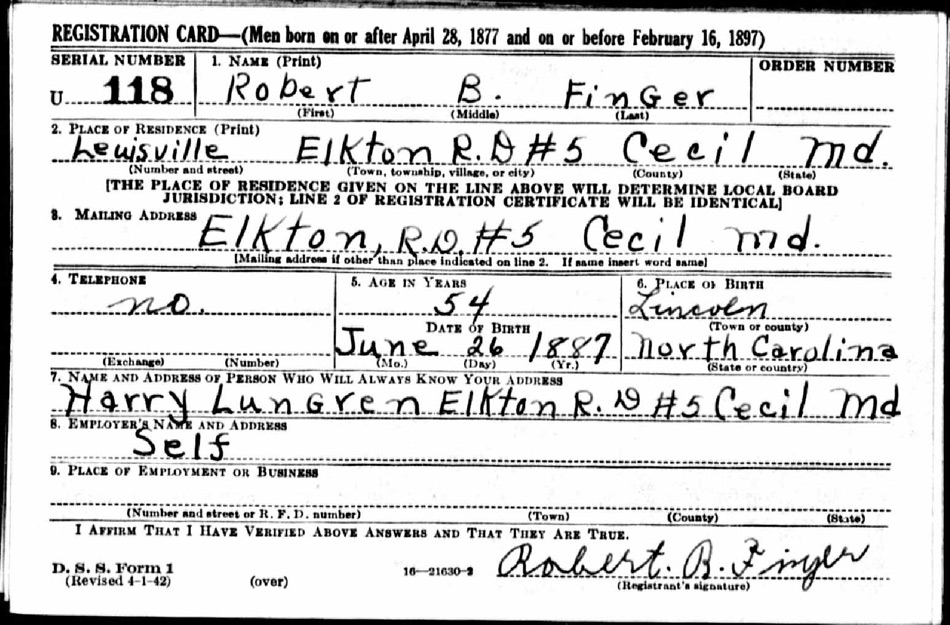 REGISTRATION CARD—(Men born on or after April 28, 1877 and on or before February 16, 1897)
SERIAL NUMBER 1. NAME (Print) ORDER NUMBER
U 118 Robert B. Finger
(First) (Middle) (Last)
2. PLACE OF RESIDENCE (Print)
Lewisville Elkton R.D #5 Cecil Md.
(Number and street) (Town, township, village, or city) (County) (State)
[THE PLACE OF RESIDENCE GIVEN ON THE LINE ABOVE WILL DETERMINE LOCAL BOARD
JURISDICTION; LINE 2 OF REGISTRATION CERTIFICATE WILL BE IDENTICAL]
3. MAILING ADDRESS
Elkton, R.D. #5 Cecil Md.
[Mailing address if other than place indicated on line 2. If same insert word same]
4. TELEPHONE 5. AGE IN YEARS 6. PLACE OF BIRTH
no. 54 Lincoln
DATE OF BIRTH (Town or county)
June 26 1887 North Carolina
(Exchange) (Number) (Mo.) (Day) (Yr.) (State or country)
7. NAME AND ADDRESS OF PERSON WHO WILL ALWAYS KNOW YOUR ADDRESS
Harry Lungren Elkton R.D #5 Cecil Md
8. EMPLOYER'S NAME AND ADDRESS
Self
9. PLACE OF EMPLOYMENT OR BUSINESS
(Number and street or R. F. D. number) (Town) (County) (State)
I AFFIRM THAT I HAVE VERIFIED ABOVE ANSWERS AND THAT THEY ARE TRUE.
Robert. B. Finger
D. S. S. Form 1 16—21630-2
(Revised 4-1-42) (over) (Registrant's signature)